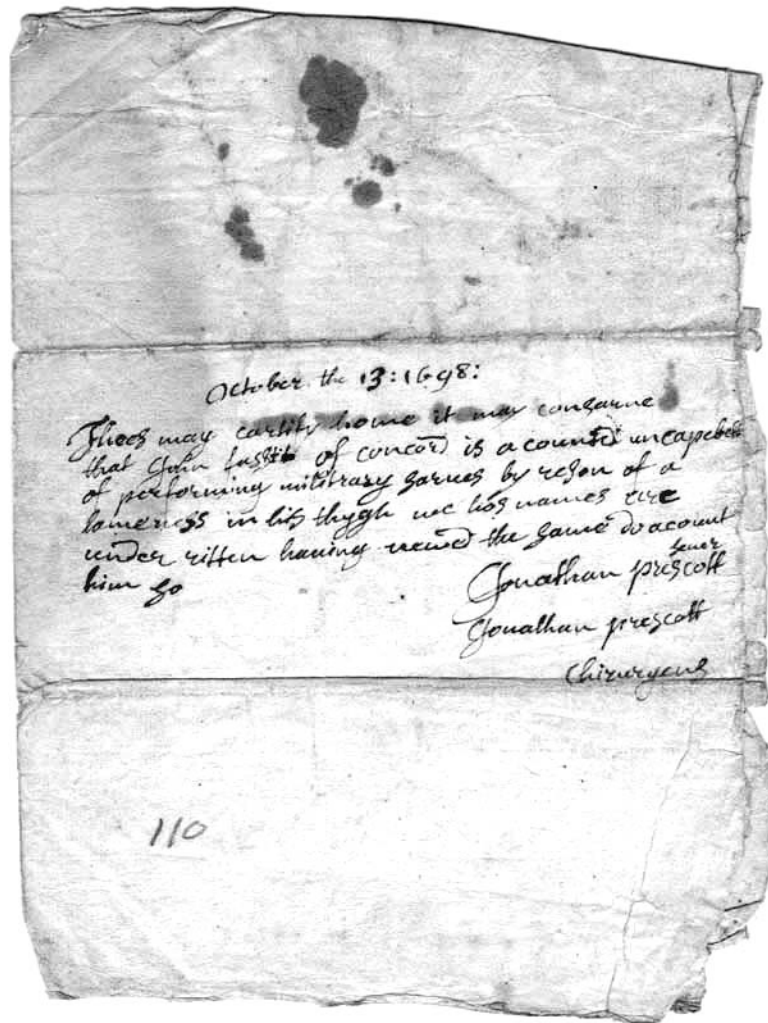 October the 13: 1698:
Thees may cartify home it may consarne
that John of concord is acounted uncapebel
of performing militrary sarves by reson of a
lameness in his thygh we hos names are
under ritten having vewed the same do acount
him so
Jonathan prescott senor
Jonathan prescott
Chirurgens
110